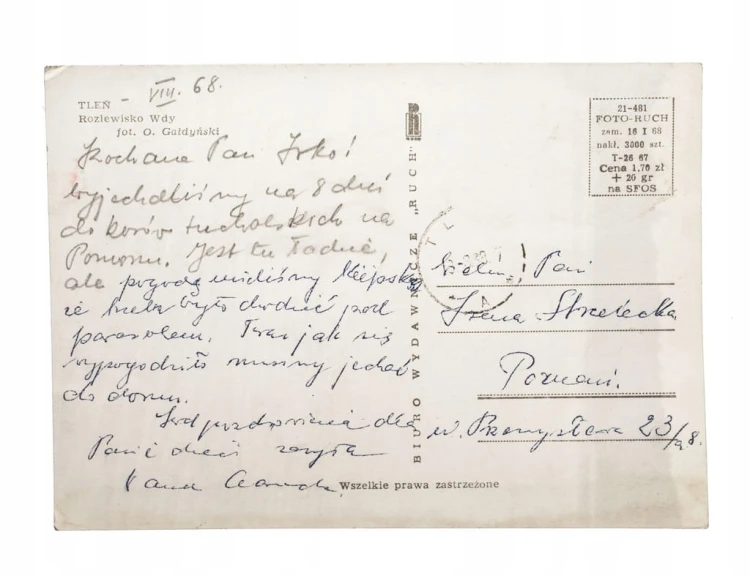 TLEŃ - VIII. 68.
Rozlewisko Wdy
fot. O. Gałdyński
Kochana Pani Irko!
wyjechaliśmy na 8 dni
do borów tucholskich na
Pomorzu. Jest tu ładnie,
ale pogodę mieliśmy kiepską
że trzeba było chodzić pod
parasolem. Teraz jak się
wypogodziło musimy jechać
do domu.
Serd. pozdrowienia dla
Pani i dzieci zasyła
Wszelkie prawa zastrzeżone
BIURO WYDAWNICZE „RUCH"
21-481
FOTO-RUCH
zam. 16 I 68
nakł. 3000 szt.
T-26 67
Cena 1.70 zł
+ 20 gr
na SFOS
TL
Pani
Irena Strzelecka
Poznań.
ul. Przemysłowa 23/